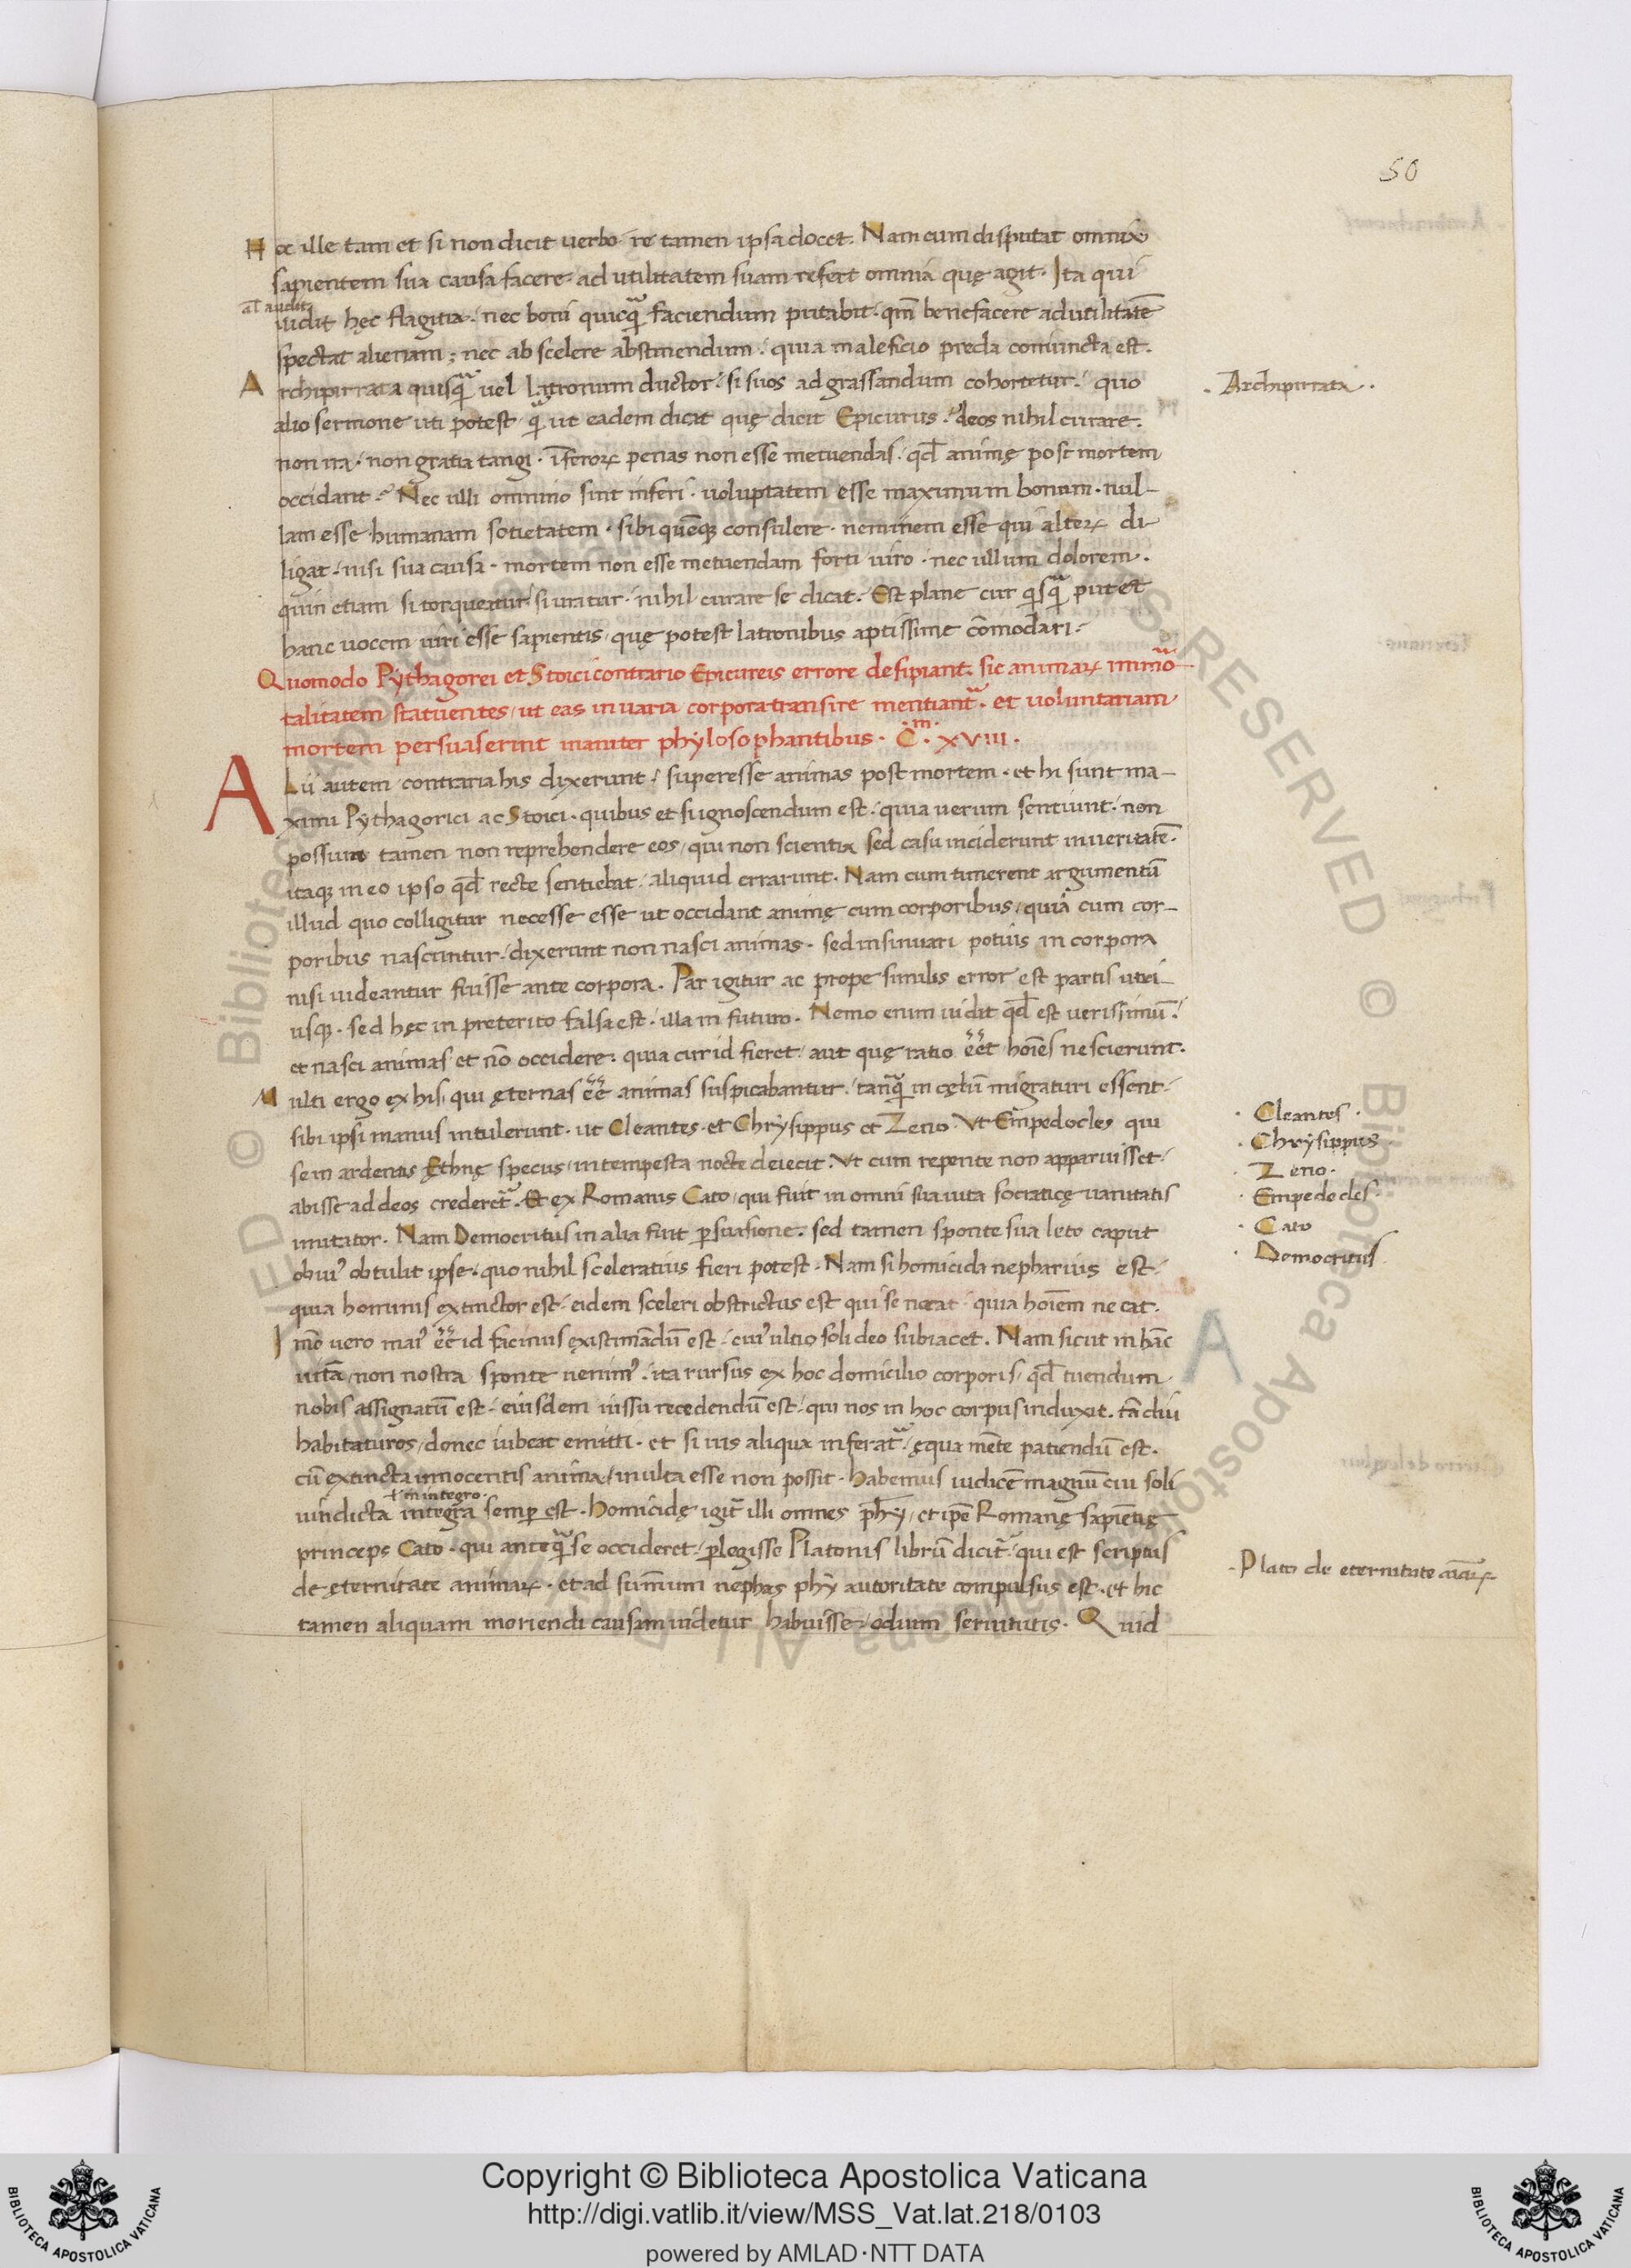 50
Hoc ille tam et si non dicit uerbo· re tamen ipsa docet. Nam cum disputat omnia
sapientem sua causa facere· ad utilitatem suam refert omnia quę agit. Ita qui
al̄ audit
uidit hęc flagitia· nec boni quicq̃ faciendum putabit· qm̄ benefacere ad utilitatē
spectat alienam; nec ab scelere abstinendum· quia maleficio preda coniuncta est.
Archipirrata quisq̃ uel latronum ductor· si suos ad grassandum cohortetur· quo
alio sermone uti potest· q̃ ut eadem dicat quę dicit Epicurus· deos nihil curare.
non ira· non gratia tangi· īferoꝝ penas non esse metuendas· qd̄ animę post mortem
occidant· Nec ulli omnino sint inferi· uoluptatem esse maximum bonum· nul-
lam esse humanam sotietatem· sibi quēq; consulere· neminem esse qui alteꝝ di
ligat· nisi sua causa· mortem non esse metuendam forti uiro· nec ullum dolorem·
quin etiam si torqueatur· si uratur· nihil curare se dicat· Est plane cur q̃sq̃ putet
hanc uocem uiri esse sapientis, quę potest latronibus aptissime cōmodari·
Quomodo Pythagorei et Stoici contrario Epicureis errore desipiant. sic animaꝝ immō
talitatem statuentes, ut eas in uaria corpora transire mentiant᷑. et uoluntariam
mortem persuaserint inaniter phylosophantibus. C.m XVIII.
ALii autem contraria his dixerunt· superesse animas post mortem· et hi sunt ma-
ximi Pythagorici ac Stoici· quibus et si ignoscendum est· quia uerum sentiunt· non
possum tamen non reprehendere eos, qui non scientia sed casu inciderunt in ueritatē.
itaq; in eo ipso qd̄ recte sentiebāt· aliquid errarunt. Nam cum timerent argumentū
illud quo colligitur necesse esse ut occidant animę cum corporibus, quia cum cor-
poribus nascuntur· dixerunt non nasci animas· sed insinuari potius in corpora
nisi uideantur fuisse ante corpora. Par igitur ac prope similis error est partis utri-
usq;· sed hęc in preterito falsa est· illa in futuro. Nemo enim uidit qd̄ est uerissimū·
et nasci animas et nō occidere: quia cur id fieret· aut quę ratio eēt hoīes nescierunt.
Multi ergo ex his, qui ęternas eē animas suspicabantur· tanq̃ in cęlū migraturi essent·
sibi ipsi manus intulerunt· ut Cleantes· et Chrysippus et Zeno. Vt Empedocles qui
sem ardentis Ęthnę specus, intempesta nocte deiecit. Vt cum repente non apparuisset·
abisse ad deos crederet᷑. Et ex Romanis Cato, qui fuit in omni sua uita socraticę uanitatis
imitator. Nam Democritus in alia fuit ꝑsuasione. sed tamen sponte sua leto caput
obuiꝰ obtulit ipse· quo nihil sceleratius fieri potest. Nam si homicida nepharius est·
quia hominis extinctor est· eidem sceleri obstrictus est qui se necat· quia hoīem necat.
Imo uero maiꝰ eē id facinus existimādū est· cuiꝰ ultio soli deo subiacet. Nam sicut in hāc
uitā, non nostra sponte uenimꝰ· ita rursus ex hoc domicilio corporis, qd̄ tuendum
nobis assignatū est· eiusdem iussu recedendū est· qui nos in hoc corpus induxit. tā diu
habitaturos, donec iubeat emitti· et si uis aliqua inferat᷑· ęqua mēte patiendū est.
cū extincta innocentis anima, inulta esse non possit. habemus iudicē magnū cui soli
in integro·
uindicta integra semꝑ est. Homicidę igit᷑ illi omnes phȳ, et ip̄e Romanę sapiētię
princeps Cato. qui anteq̃ se occideret· ꝑlegisse Platonis librū dicit᷑· qui est scriptus
de ęternitate animaꝝ· et ad sum̄um nephas phȳ autoritate compulsus est· et hic
tamen aliquam moriendi causam uidetur habuisse, odium seruitutis. Quid
· Archipirrata ·
· Cleantes ·
· Chrysippus
· Zeno ·
· Empedocles ·
· Cato
· Democritus
· Plato de eternitate aīaꝝ
A
© Biblioteca Apostolica Vaticana ALL RIGHTS RESERVED
Copyright © Biblioteca Apostolica Vaticana
http://digi.vatlib.it/view/MSS_Vat.lat.218/0103
powered by AMLAD·NTT DATA
BIBLIOTECA APOSTOLICA VATICANA
BIBLIOTECA APOSTOLICA VATICANA